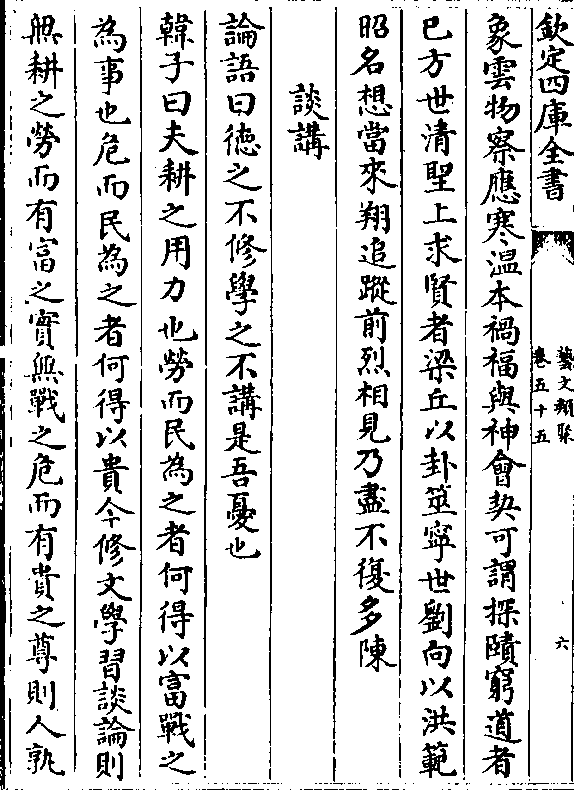 欽定四庫全書
藝文類聚
卷五十五
六
象雲物察應寒溫本禍福與神會契可謂探賾窮道者
已方世清聖上求賢者梁丘以卦筮寧世劉向以洪範
昭名想當來翔追蹤前烈相見乃盡不復多陳
談講
論語曰德之不修學之不講是吾憂也
韓子曰夫耕之用力也勞而民為之者何得以富戰之
為事也危而民為之者何得以貴今修文學習談論則
無耕之勞而有富之實無戰之危而有貴之尊則人孰